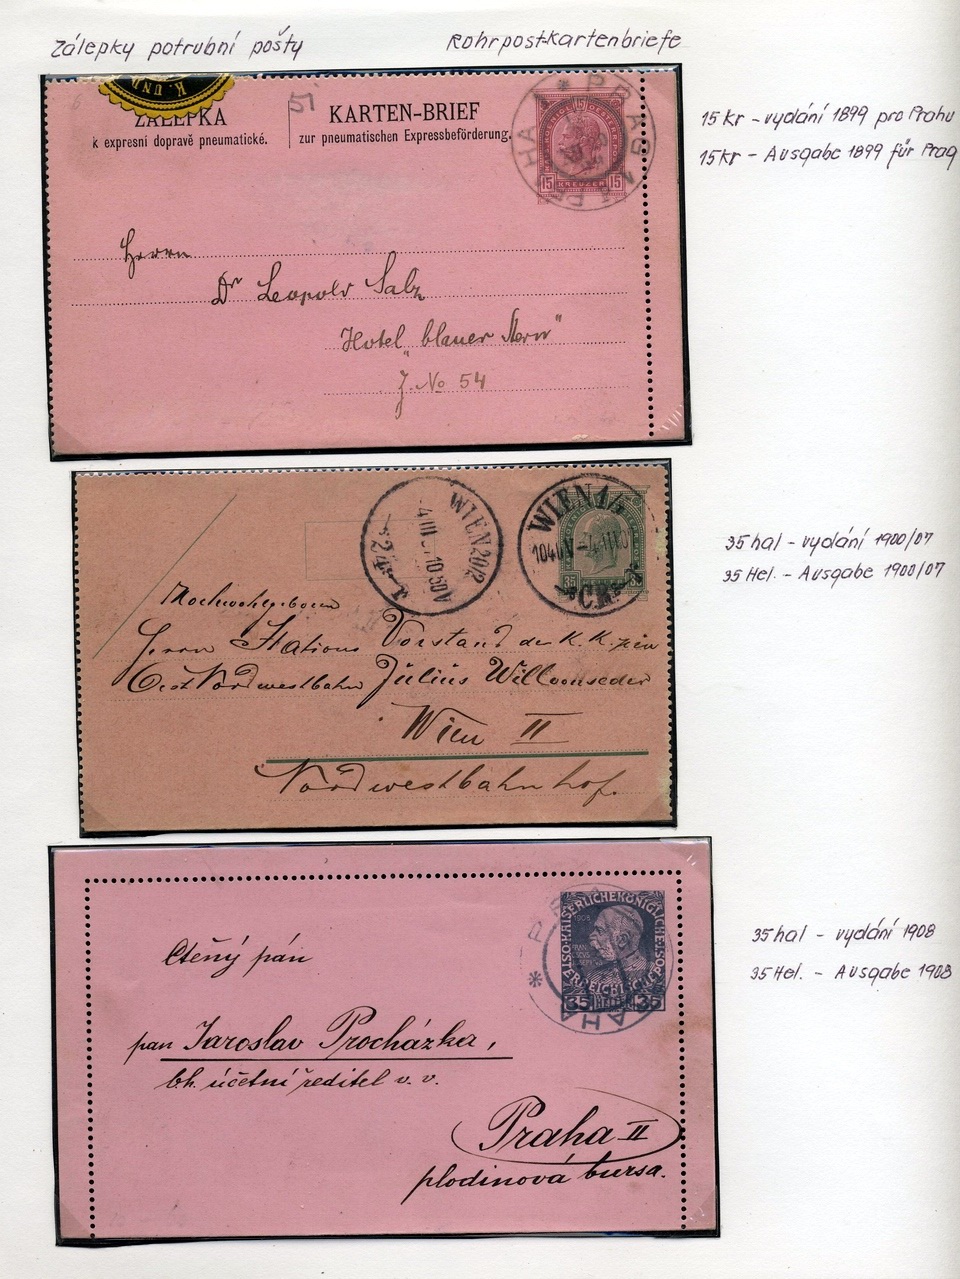 Zálepky potrubní pošty
Rohrpost-Kartenbriefe
K. UND
ZÁLEPKA
k expresní dopravě pneumatické.
57
KARTEN-BRIEF
zur pneumatischen Expressbeförderung.
PRAG 1
PRAHA 1
15 KREUZER 15
15 kr - vydání 1899 pro Prahu
15 kr - Ausgabe 1899 für Prag
Herrn
Dr Leopold Salz
Hotel „blauer Stern"
Z. No 54
WIEN 20/2
4 III
10 50V
*2d*
WIEN 1/1
35 HELLER 35
35 hal - vydání 1900/07
35 Hel. - Ausgabe 1900/07
Hochwohlgeboren
Herrn Stations Vorstand der K. K. priv
Oest Nordwestbahn Julius Willomseder
Wien II
Nordwestbahnhof.
KAISERLICHEKÖNIGLICHE
ÖSTERREICHISCHE POST
1908
35 HELLER 35
PRAHA
35 hal - vydání 1908
35 Hel. - Ausgabe 1908
Ctěný pán
pan Jaroslav Procházka,
bh. účetní ředitel v. v.
Praha II
plodinová bursa.